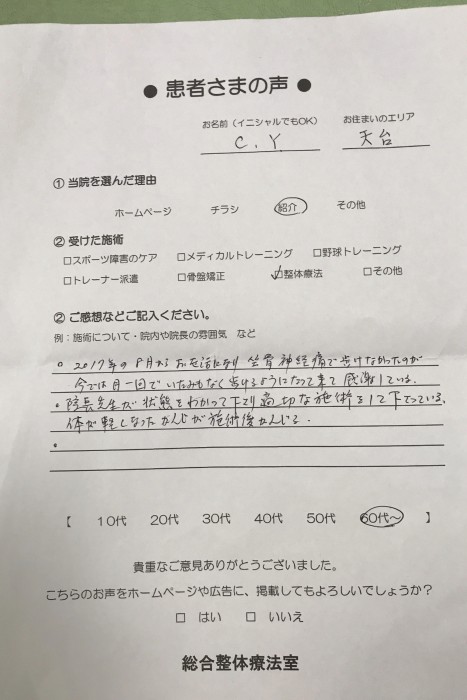 ● 患者さまの声 ●
お名前（イニシャルでもOK） お住まいのエリア
C.Y 天台
① 当院を選んだ理由
ホームページ チラシ 紹介 その他
② 受けた施術
□スポーツ障害のケア □メディカルトレーニング □野球トレーニング
□トレーナー派遣 □骨盤矯正 ☑整体療法 □その他
② ご感想などご記入ください。
例：施術について・院内や院長の雰囲気 など
。2017年の8月からお世話になり 坐骨神経痛で歩けなかったのが
今では月一回でいたみもなく歩けるようになって来て感謝している。
・院長先生が状態をわかって下さり適切な施術をして下さっている。
体が軽くなったかんじが施術後かんじる。
。
【 10代 20代 30代 40代 50代 60代～ 】
貴重なご意見ありがとうございました。
こちらのお声をホームページや広告に、掲載してもよろしいでしょうか？
□ はい □ いいえ
総合整体療法室